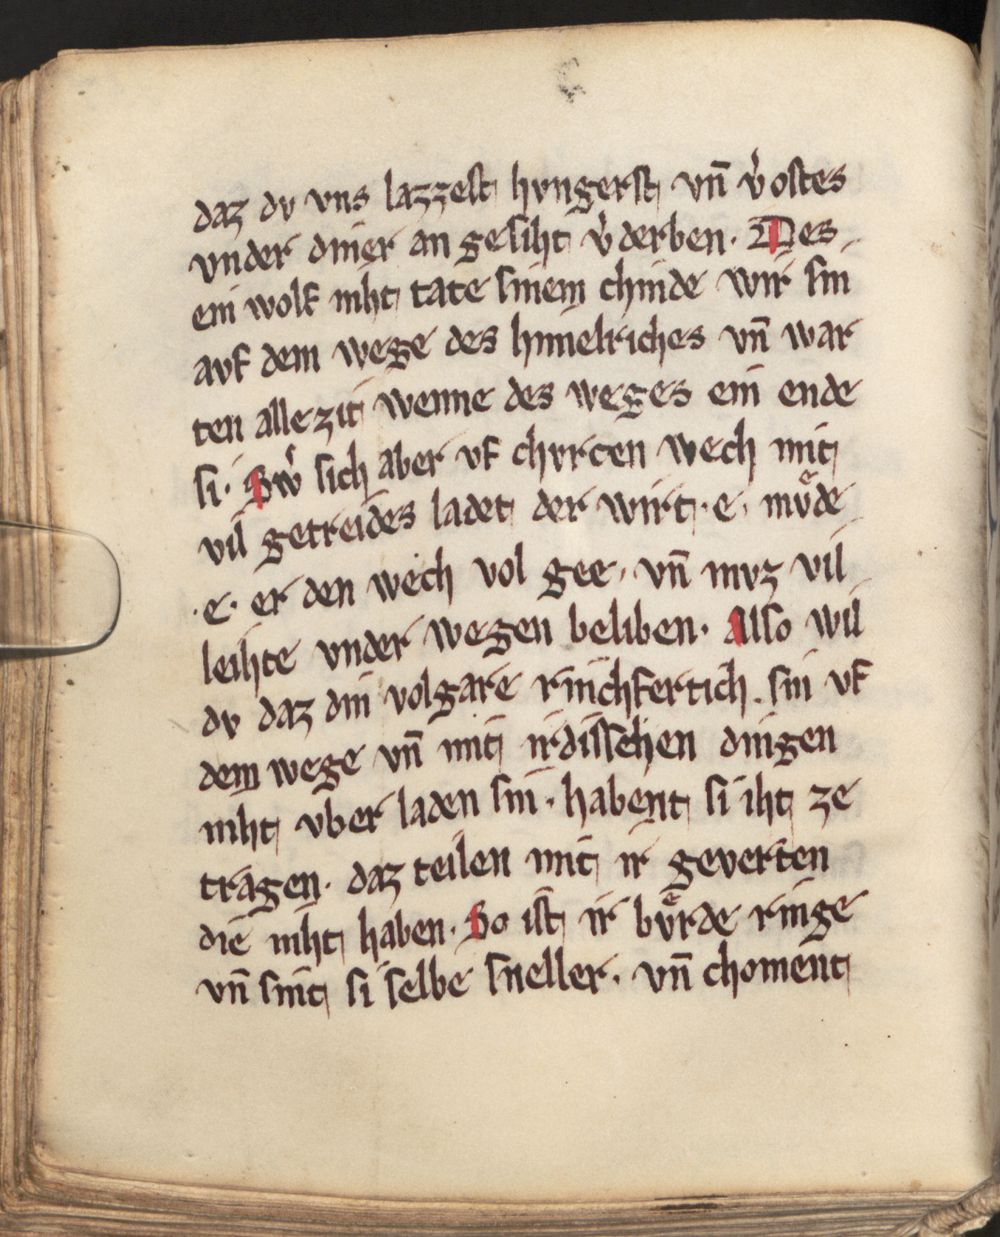 daz dv vns lazzest hvngers vn̄ v̓ ostes
vnder diner an gesiht v̓ derben. Des
ein wolf niht tate sinem chinde wir sin
avf dem wege des himelriches vn̄ war
ten alle zit wenne des weges ein ende
si. Sw̓ sich aber vf chvrcen wech mit
vil getreides ladet der wirt .e. mvͤde
.e. er den wech vol gee. vn̄ mvz vil
leihte vnder wegen beliben. Also wil
dv daz din volgare rinchfertich. sin vf
dem wege vn̄ mit irdisschen dingen
niht vber laden sin. habent si iht ze
tragen. daz teilen mit ir geverten
die niht haben. So ist ir bvͤrde ringe
vn̄ sint si selbe sneller. vn̄ choment